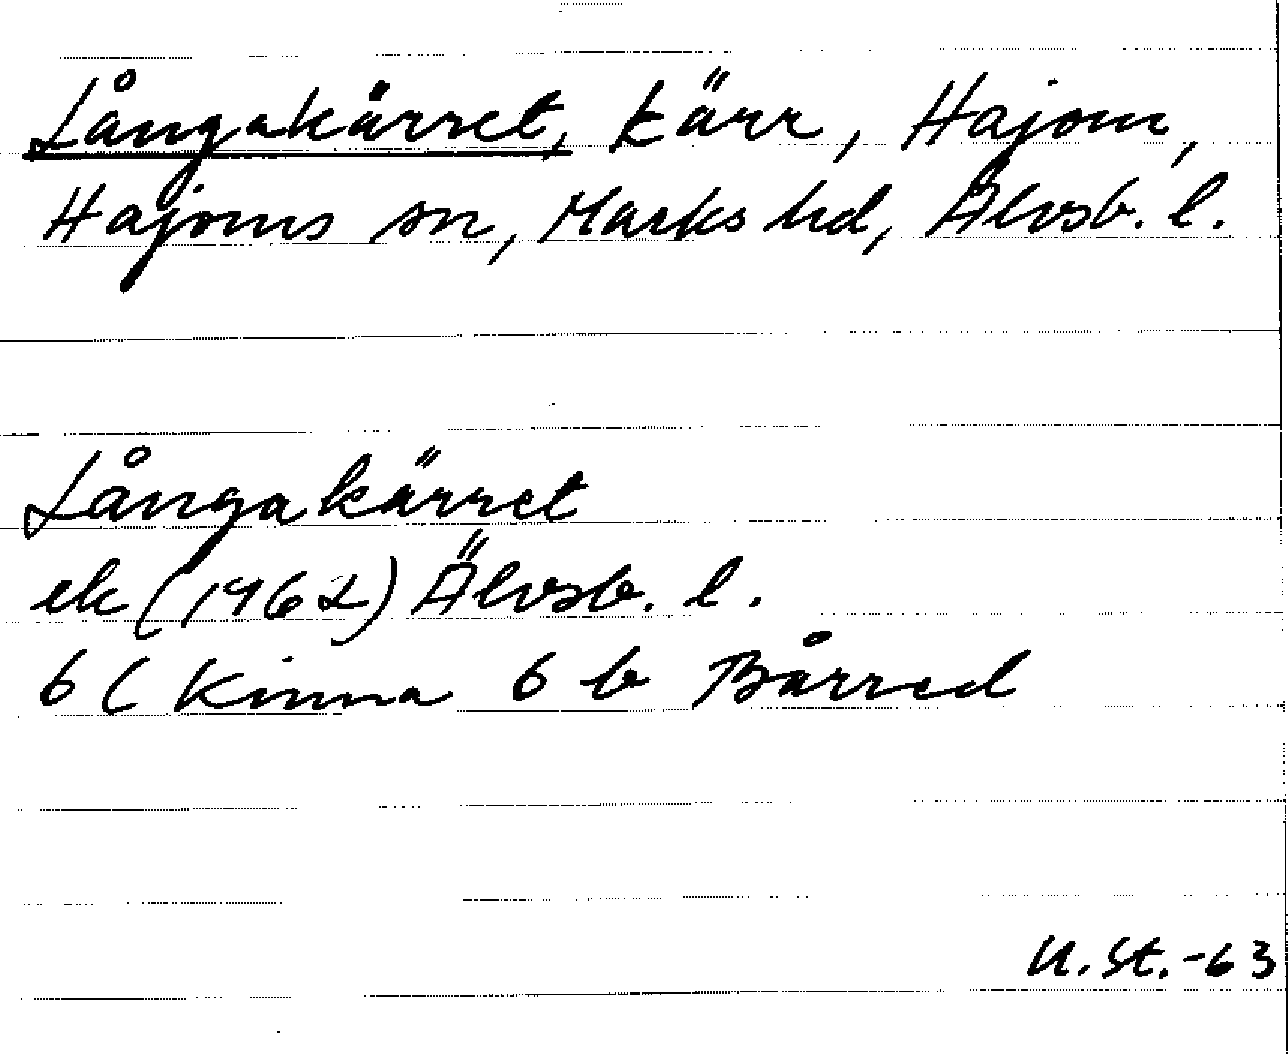 Långakärret, kärr, Hajom,
Hajoms sn, Marks hd, Älvsb. l.
Långakärret
ek (1962) Älvsb. l.
6 C Kinna 6 b Bårred
U. St. -63